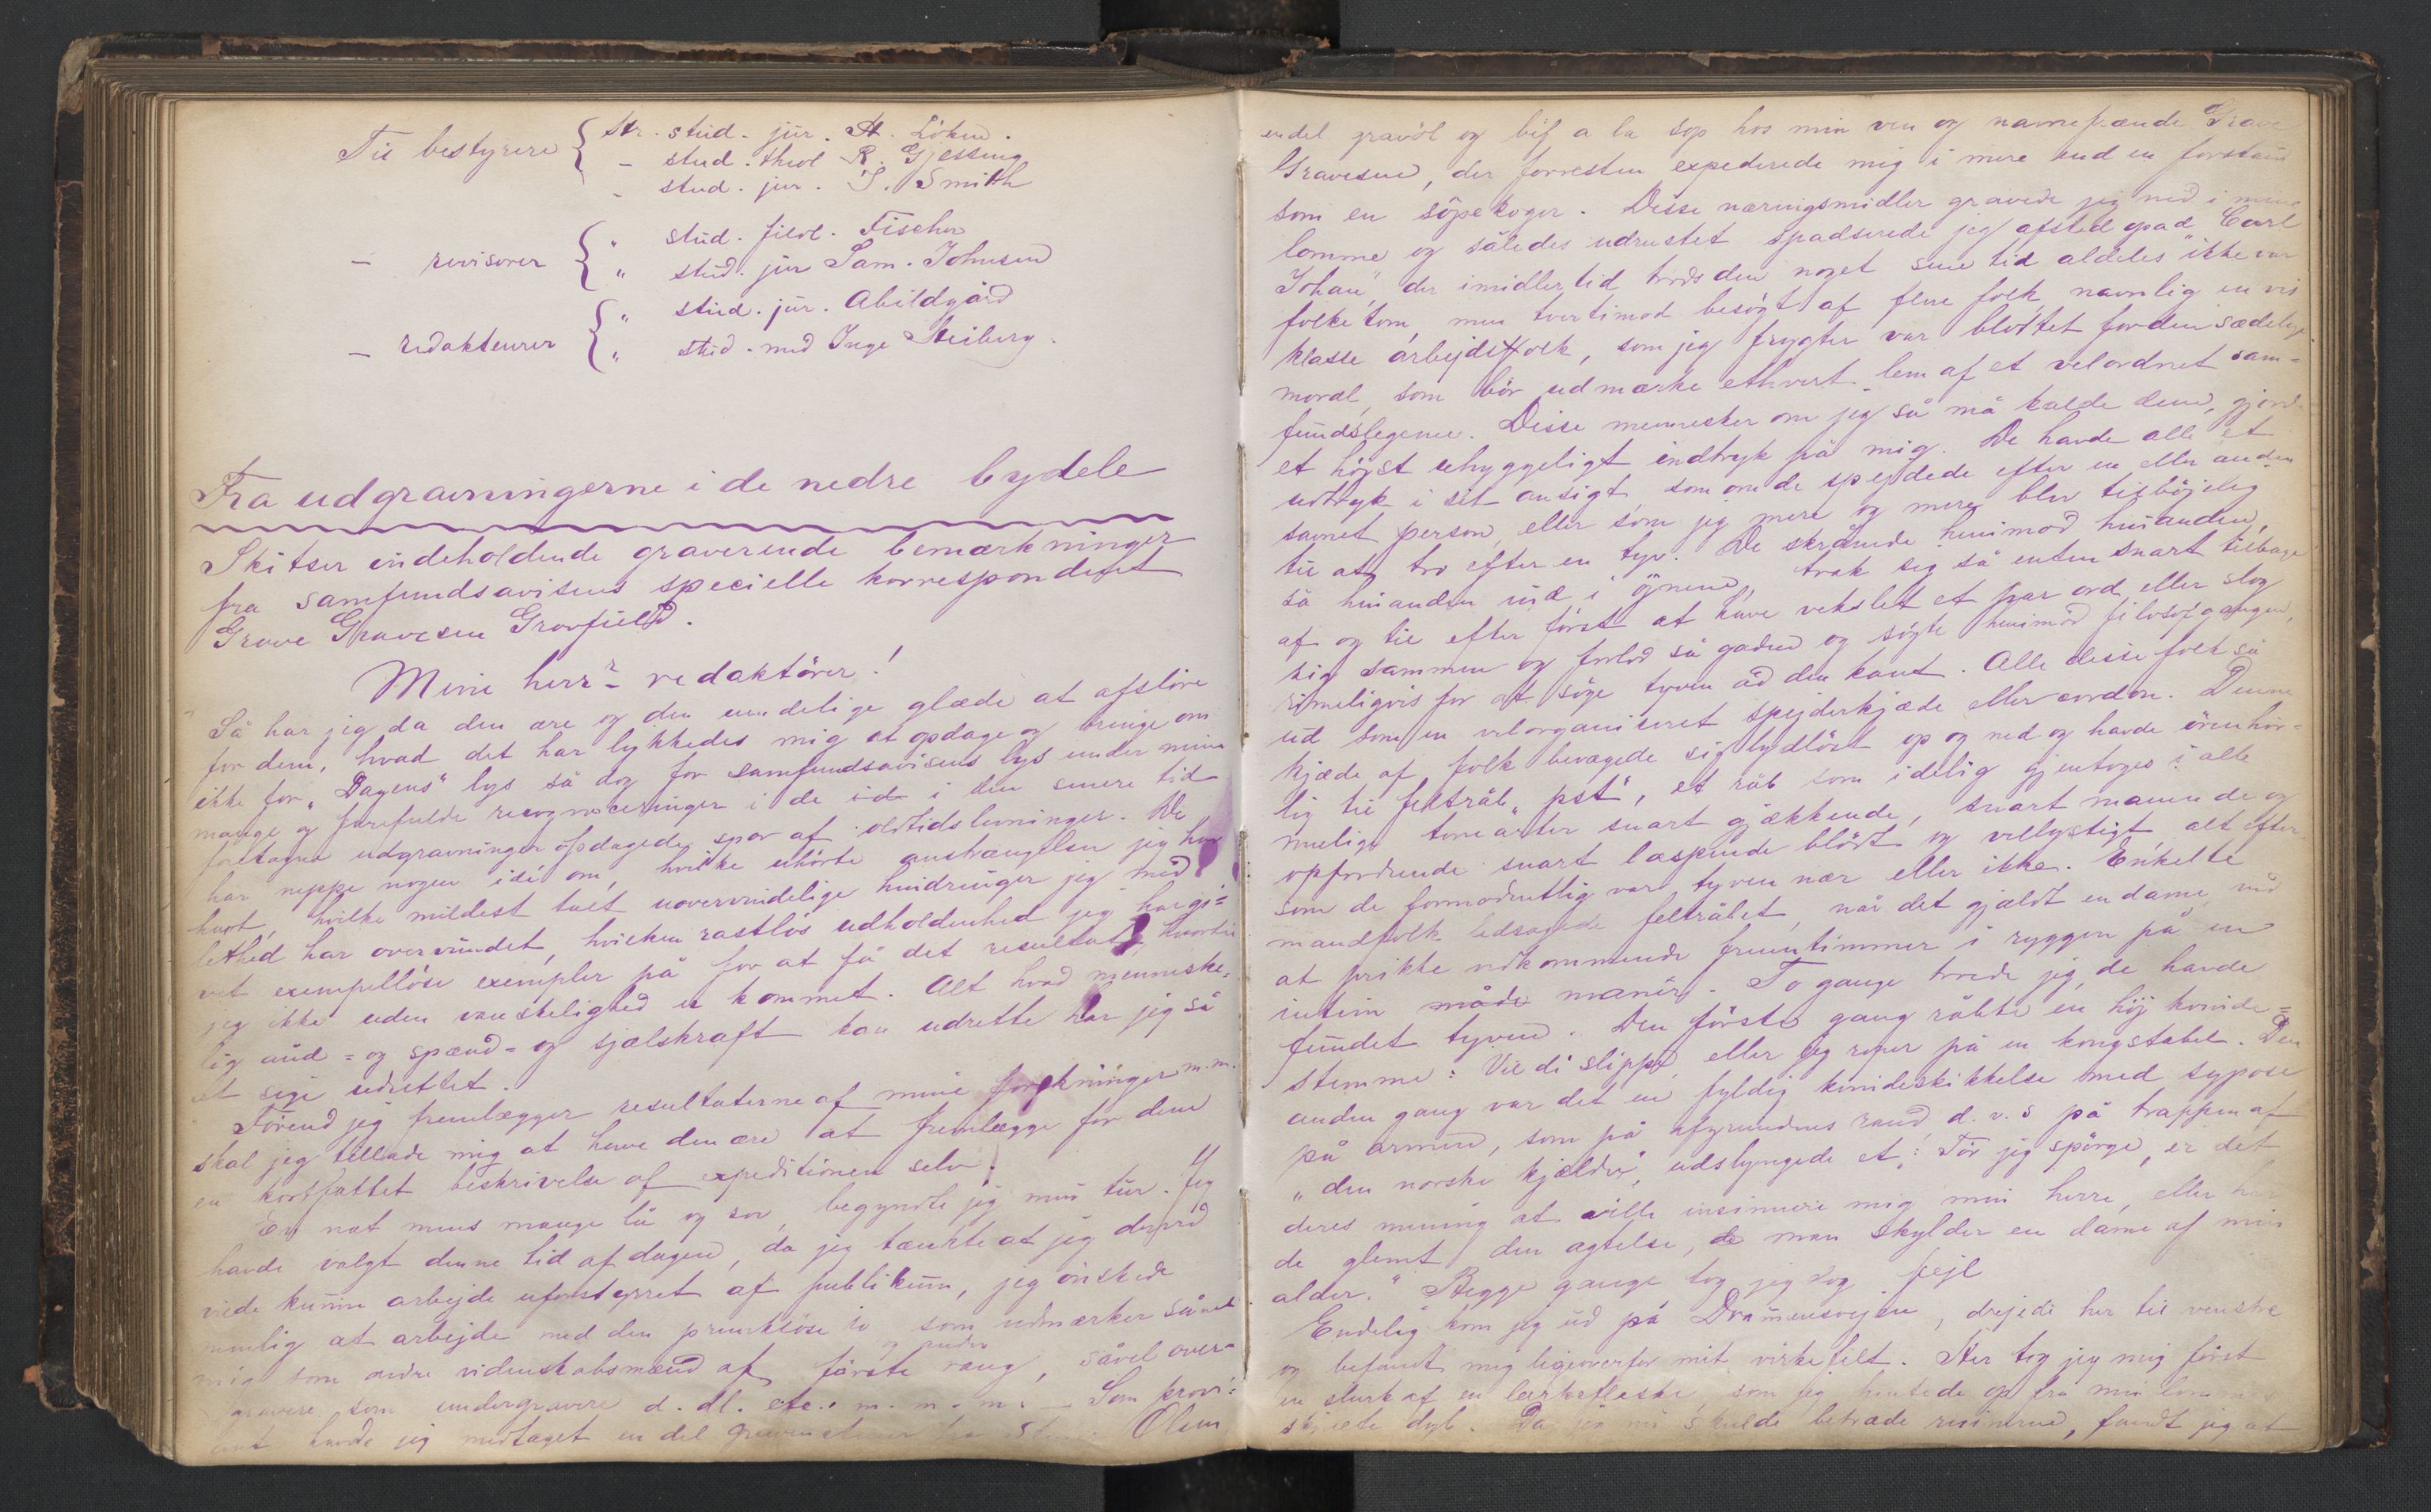 Til bestyrere { Hr. stud. jur. H. Löken.
– stud. theol R. Gjessing
– stud. jur. S. Smith
– revisorer { " stud. filol. Fischer
" stud. jur Sam. Johnsen
– redakteurer { " stud. jur. Abildgård
" stud. med Inge Steiberg.
Fra udgravningerne i de nedre bydele
Skitser indeholdende graverende bemærkninger
fra samfundsavisens specielle korrespondent
Grave Gravesen Gravfield.
Mine herr– redaktörer!
Så har jeg da den ære og den uendelige glæde at afslöre
for dem, hvad det har lykkedes mig at opdage og bringe om
ikke for „Dagens“ lys så dog for samfundsavisens lys under mine
mange og farefulde recognosceringer i de i de i den senere tid
foretagne udgravninger opdagede spor af oldtidslevninger. De
har neppe nogen idé om, hvilke uhörte anstrængelser jeg har
havt, hvilke mildest talt uovervindelige hindringer jeg med
lethed har overvundet, hvilken rastlös udholdenhed jeg har gi=
vet exempellöse exempler på for at få det resultat, hvortil
jeg ikke uden vanskelighed er kommet. Alt hvad menneske=
lig ånd= og spænd= og sjælskraft kan udrette har jeg så
at sige udrettet.
Förend jeg fremlægger resultaterne af mine forskninger m.m.
skal jeg tillade mig at have den ære at fremlægge for dem
en kortfattet beskrivelse af expeditionen selv.
En nat mens mange lå og sov, begyndte jeg min tur. Jeg
havde valgt denne tid af dagen, da jeg tænkte at jeg derved
vilde kunne arbejde uforstyrret af publikum, jeg önskede
nemlig at arbejde med den prunklöse ro som udmærker såvel
mig som andre videnskabsmænd af förste og anden rang, såvel over=
gravere som undergravere d. dl. etc. m. m. m. – Som provi=
ant havde jeg medtaget en del Olsen
endel gravöl og bif a la sop hos min ven og navnefrænde Grave
Gravesen, der forresten expederede mig i mere end en forstand
som en söpekoger. Disse næringsmidler gravede jeg ned i mine
lomme og således udrustet spadserede jeg afsted opad „Carl
Johan“, der imidlertid trods den noget sene tid aldeles ikke var
folketom, men tvertimod besögt af flere folk, navnlig en vis
klasse arbejdsfolk, som jeg frygter var blottet for den sædelige
moral, som bör udmærke ethvert lem af et velordnet sam=
fundslegeme. Disse mennesker om jeg så må kalde dem, gjorde
et höjst uhyggeligt indtryk på mig. De havde alle et
udtryk i sit ansigt, som om de spejdede efter en eller anden
savnet person, eller som jeg mere og mere blev tilböjelig
til at tro efter en tyv. De skrånede henimod hinanden,
så hinanden ind i öjnene, trak sig så enten snart tilbage
af og til efter först at have vekslet et par ord eller slog
sig sammen og forlod så gaden og sögte henimod filosofgangen,
rimeligvis for at söge tyven ad den kant. Alle disse folk så
ud som en velorganiseret spejderkjæde eller cordon. Denne
kjæde af folk bevægede sig lydlöst op og ned og havde örenhör=
lig til feltråb „pst“, et råb som idelig gjentoges i alle
mulige tonearter snart gjækkende, snart manende og
opfordrende snart læspende blödt og vellystigt alt efter
som de formodentlig var tyven nær eller ikke. Enkelte
mandfolk ledsagede feltråbet, når det gjældt en dame, ved
at prikke vedkommende fruentimmer i ryggen på en
intim måde manér. To gange troede jeg, de havde
fundet tyven. Den förste gang råbte en höj kvinde=
stemme: Vil di slippe, eller jeg roper på en kongstabel. Den
anden gang var det en fyldig kvindeskikkelse med sypose
på armen, som på afgrundens rand d. v. s på trappen af
„den norske kjælder“, udslyngede et: „Tör jeg spörge, er det
deres mening at ville insinuere mig min herre, eller har
de glemt den agtelse, de man skylder en dame af min
alder.“ Begge gange tog jeg dog fejl
Endelig kom jeg ud på Drammensvejen, drejede her til venstre
og befandt mig ligeoverfor mit virkefelt. Her tog jeg mig först
en slurk af en lærkeflaske, som jeg hentede op fra min lommes
dyb. Da jeg nu skulde betræde ruinerne, fandt jeg at